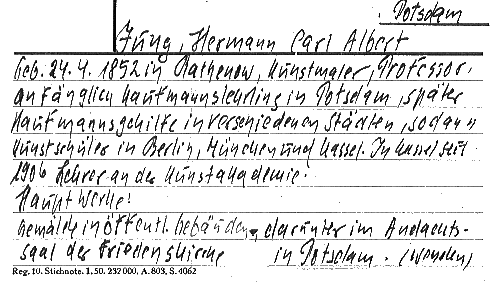 Potsdam
Jung, Hermann Carl Albert
geb. 24.4.1852 in Rathenow, Kunstmaler, Professor.
anfänglich Kaufmannslehrling in Potsdam, später
Kaufmannsgehilfe in verschiedenen Städten, sodann
Kunstschüler in Berlin, München und Kassel. In Kassel seit
1906 Lehrer an der Kunstakademie.
Hauptwerke:
Gemälde in öffentl. Gebäuden, darunter im Andachts-
saal der Friedenskirche in Potsdam.
Reg. 10. Stichnote. 1, 50. 232000, A. 803, S. 4062